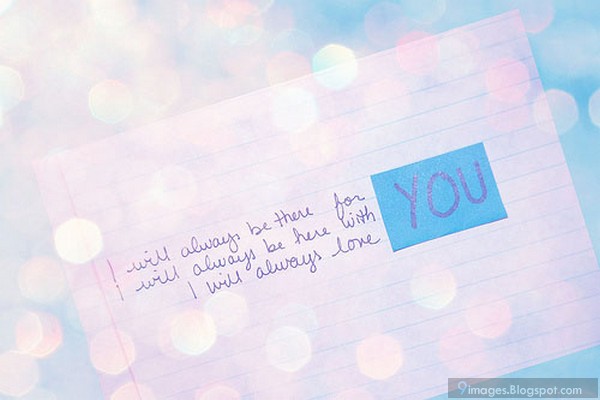 I will always be there for
I will always be here with
I will always love
YOU
9images.Blogspot.com